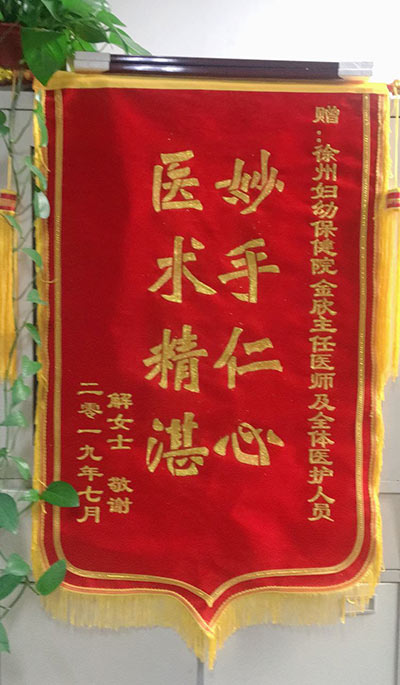 赠：徐州妇幼保健院金欣主任医师及全体医护人员
妙手仁心
医术精湛
解女士 敬谢
二零一九年七月